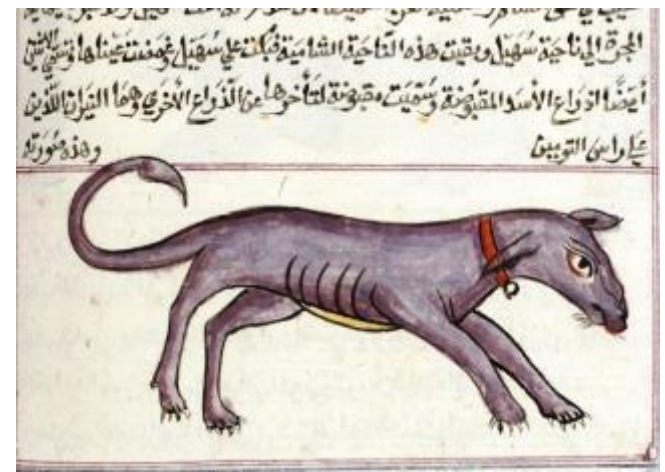 المجرة الي ناحية سهيل وبقيت هذه الناحية الشامية فبكت علي سهيل وغمضت عيناها وتسمي
أيضًا اذراع الأسد المقبوضة وسميت مقبوضة لتأخرها عن الذراع الأخري وهما النيران اللذين
علي راس التومين وهذه صورته